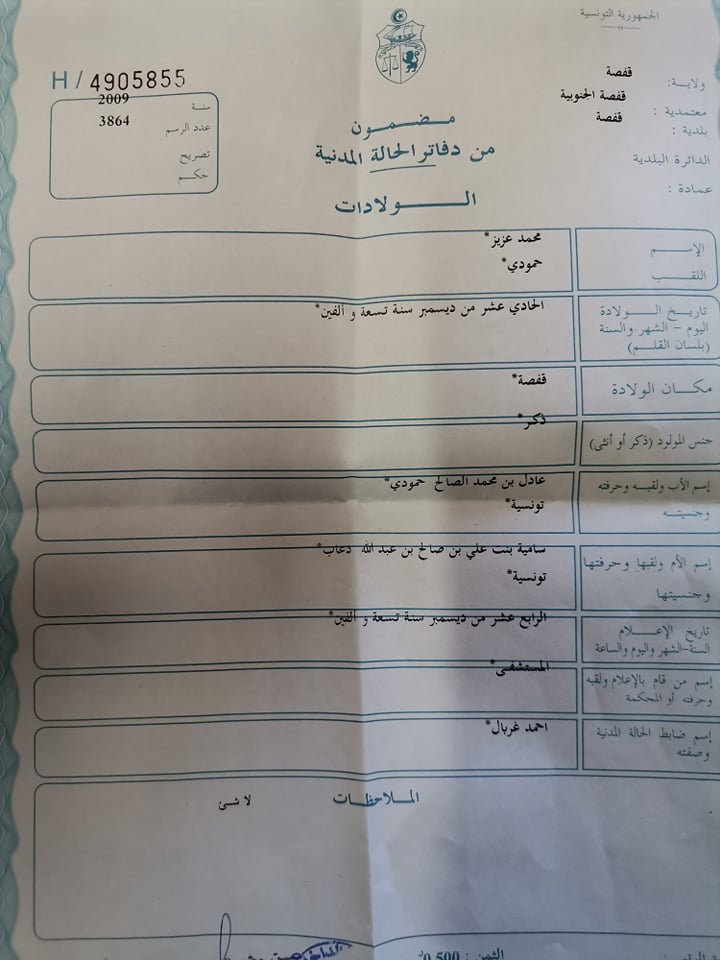 الجمهورية التونسية
ولاية: قفصة
معتمدية: قفصة الجنوبية
بلدية: قفصة
الدائرة البلدية
عمادة:
H / 4905855
سنة 2009
عدد الرسم 3864
تصريح
حكم
مضمون
من دفاتر الحالة المدنية
الولادات
الإسم محمد عزيز*
اللقب حمودي*
تاريخ الولادة الحادي عشر من ديسمبر سنة تسعة و ألفين*
اليوم - الشهر والسنة
(بلسان القلم)
مكان الولادة قفصة*
جنس المولود (ذكر أو أنثى) ذكر*
إسم الأب ولقبه وحرفته عادل بن محمد الصالح حمودي*
وجنسيته تونسية*
إسم الأم ولقبها وحرفتها سامية بنت علي بن صالح بن عبد الله دعاب*
وجنسيتها تونسية*
تاريخ الإعلام الرابع عشر من ديسمبر سنة تسعة و ألفين*
السنة-الشهر واليوم والساعة
إسم من قام بالإعلام ولقبه المستشفى*
وحرفته أو المحكمة
إسم ضابط الحالة المدنية احمد غربال*
وصفته
الملاحظات
لا شئ
الثمن: 0,500